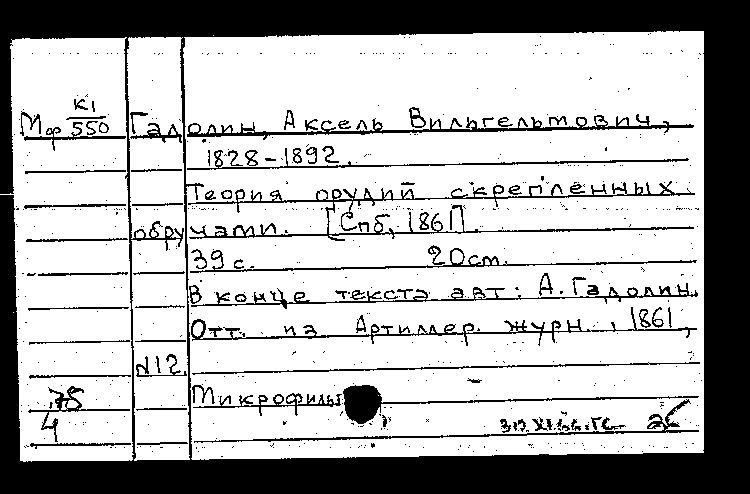 Мф К1/550 Гадолин, Аксель Вильгельмович,
1828-1892.
Теория орудий скрепленных
обручами. [Спб, 1861].
39 с. 20 см.
В конце текста авт: А. Гадолин.
Отт. из Артиллер. журн., 1861,
N12.
75 Микрофильм
4